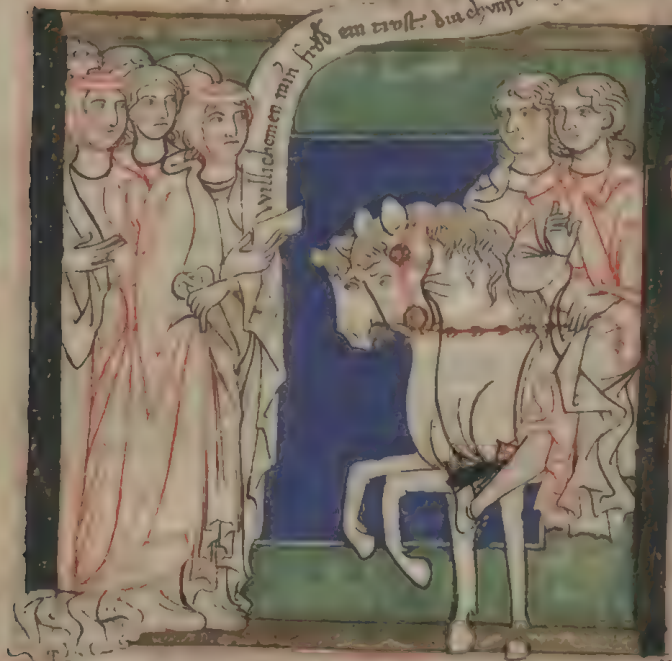 willichomen min ein trost. diu chunft